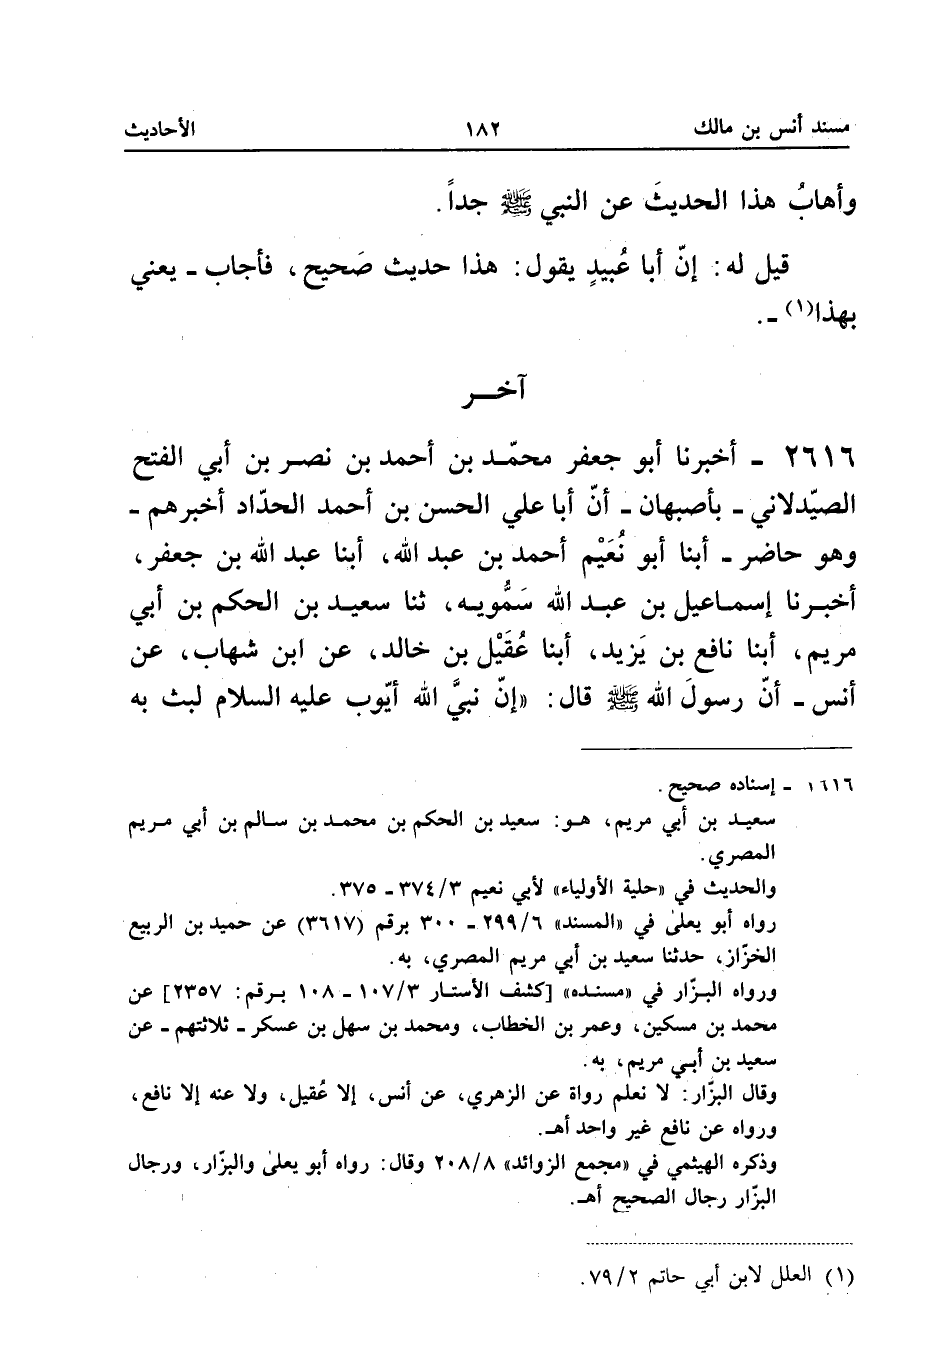 مسند أنس بن مالك ١٨٢ الأحاديث
وأهابُ هذا الحديثَ عن النبي ﷺ جداً.
قيل له: إنّ أبا عُبيدٍ يقول: هذا حديث صَحيح، فأجاب ـ يعني
بهذا(١) ـ.
آخـــر
٢٦١٦ ـ أخبرنا أبو جعفر محمّـد بن أحمد بن نصـر بن أبي الفتح
الصيّدلاني ـ بأصبهان ـ أنّ أبا علي الحسن بن أحمد الحدّاد أخبرهم ـ
وهو حاضر ـ أبنا أبو نُعَيْم أحمد بن عبد الله، أبنا عبد الله بن جعفر،
أخبـرنا إسمـاعيل بن عبـد الله سَمُّويـه، ثنا سعيـد بن الحكم بن أبي
مريم، أبنا نافع بن يَزيد، أبنا عُقَيْل بن خالد، عن ابن شهاب، عن
أنس ـ أنّ رسولَ الله ﷺ قال: «إنّ نبيَّ الله أيّوب عليه السلام لبث به
١٦١٦ ـ إسناده صحيح.
سعيـد بن أبي مريم، هـو: سعيد بن الحكم بن محمـد بن سـالم بن أبي مـريم
المصري.
والحديث في «حلية الأولياء» لأبي نعيم ٣/ ٣٧٤ ـ ٣٧٥.
رواه أبو يعلى في «المسند» ٦/ ٢٩٩ ـ ٣٠٠ برقم (٣٦١٧) عن حميد بن الربيع
الخزّاز، حدثنا سعيد بن أبي مريم المصري، به.
ورواه البـزّار في «مسنـده» [كشف الأستـار ٣/ ١٠٧ ـ ١٠٨ بـرقم: ٢٣٥٧] عن
محمد بن مسكين، وعمر بن الخطاب، ومحمد بن سهل بن عسكر ـ ثلاثتهم ـ عن
سعيد بن أبـي مريم، به.
وقال البزّار: لا نعلم رواة عن الزهري، عن أنس، إلا عُقيل، ولا عنه إلا نافع،
ورواه عن نافع غير واحد أهـ.
وذكره الهيثمي في «مجمع الزوائد» ٨/ ٢٠٨ وقال: رواه أبو يعلى والبزّار، ورجال
البزّار رجال الصحيح أهـ.
(١) العلل لابن أبي حاتم ٢/ ٧٩.